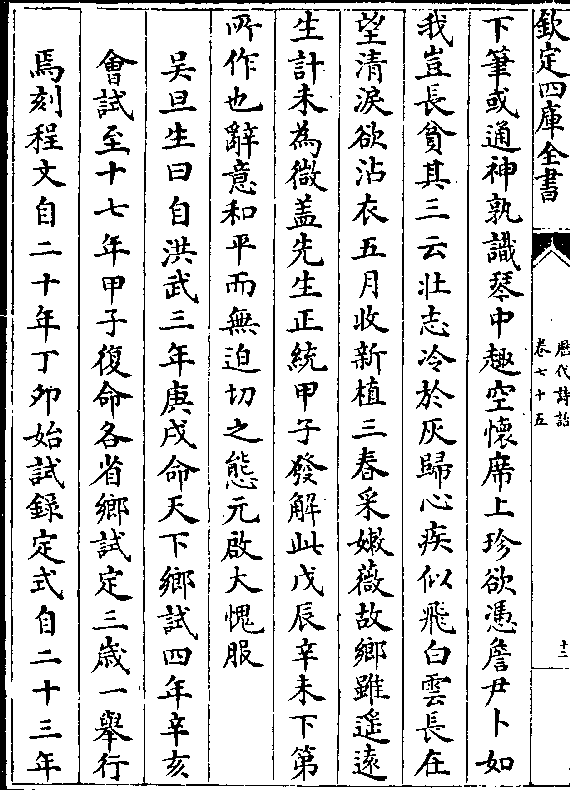 欽定四庫全書
歷代詩話
卷七十五
十三
下筆或通神孰識琴中趣空懷席上珍欲憑詹尹卜如
我豈長貧其三云壯志冷於灰歸心疾似飛白雲長在
望清淚欲沾衣五月收新植三春采嫩薇故鄉雖遙遠
生計未為微盖先生正統甲子發解此戊辰辛未下第
所作也辭意和平而無迫切之態元啟大愧服
吳旦生曰自洪武三年庚戌命天下鄉試四年辛亥
會試至十七年甲子復命各省鄉試定三歲一舉行
焉刻程文自二十年丁卯始試錄定式自二十三年